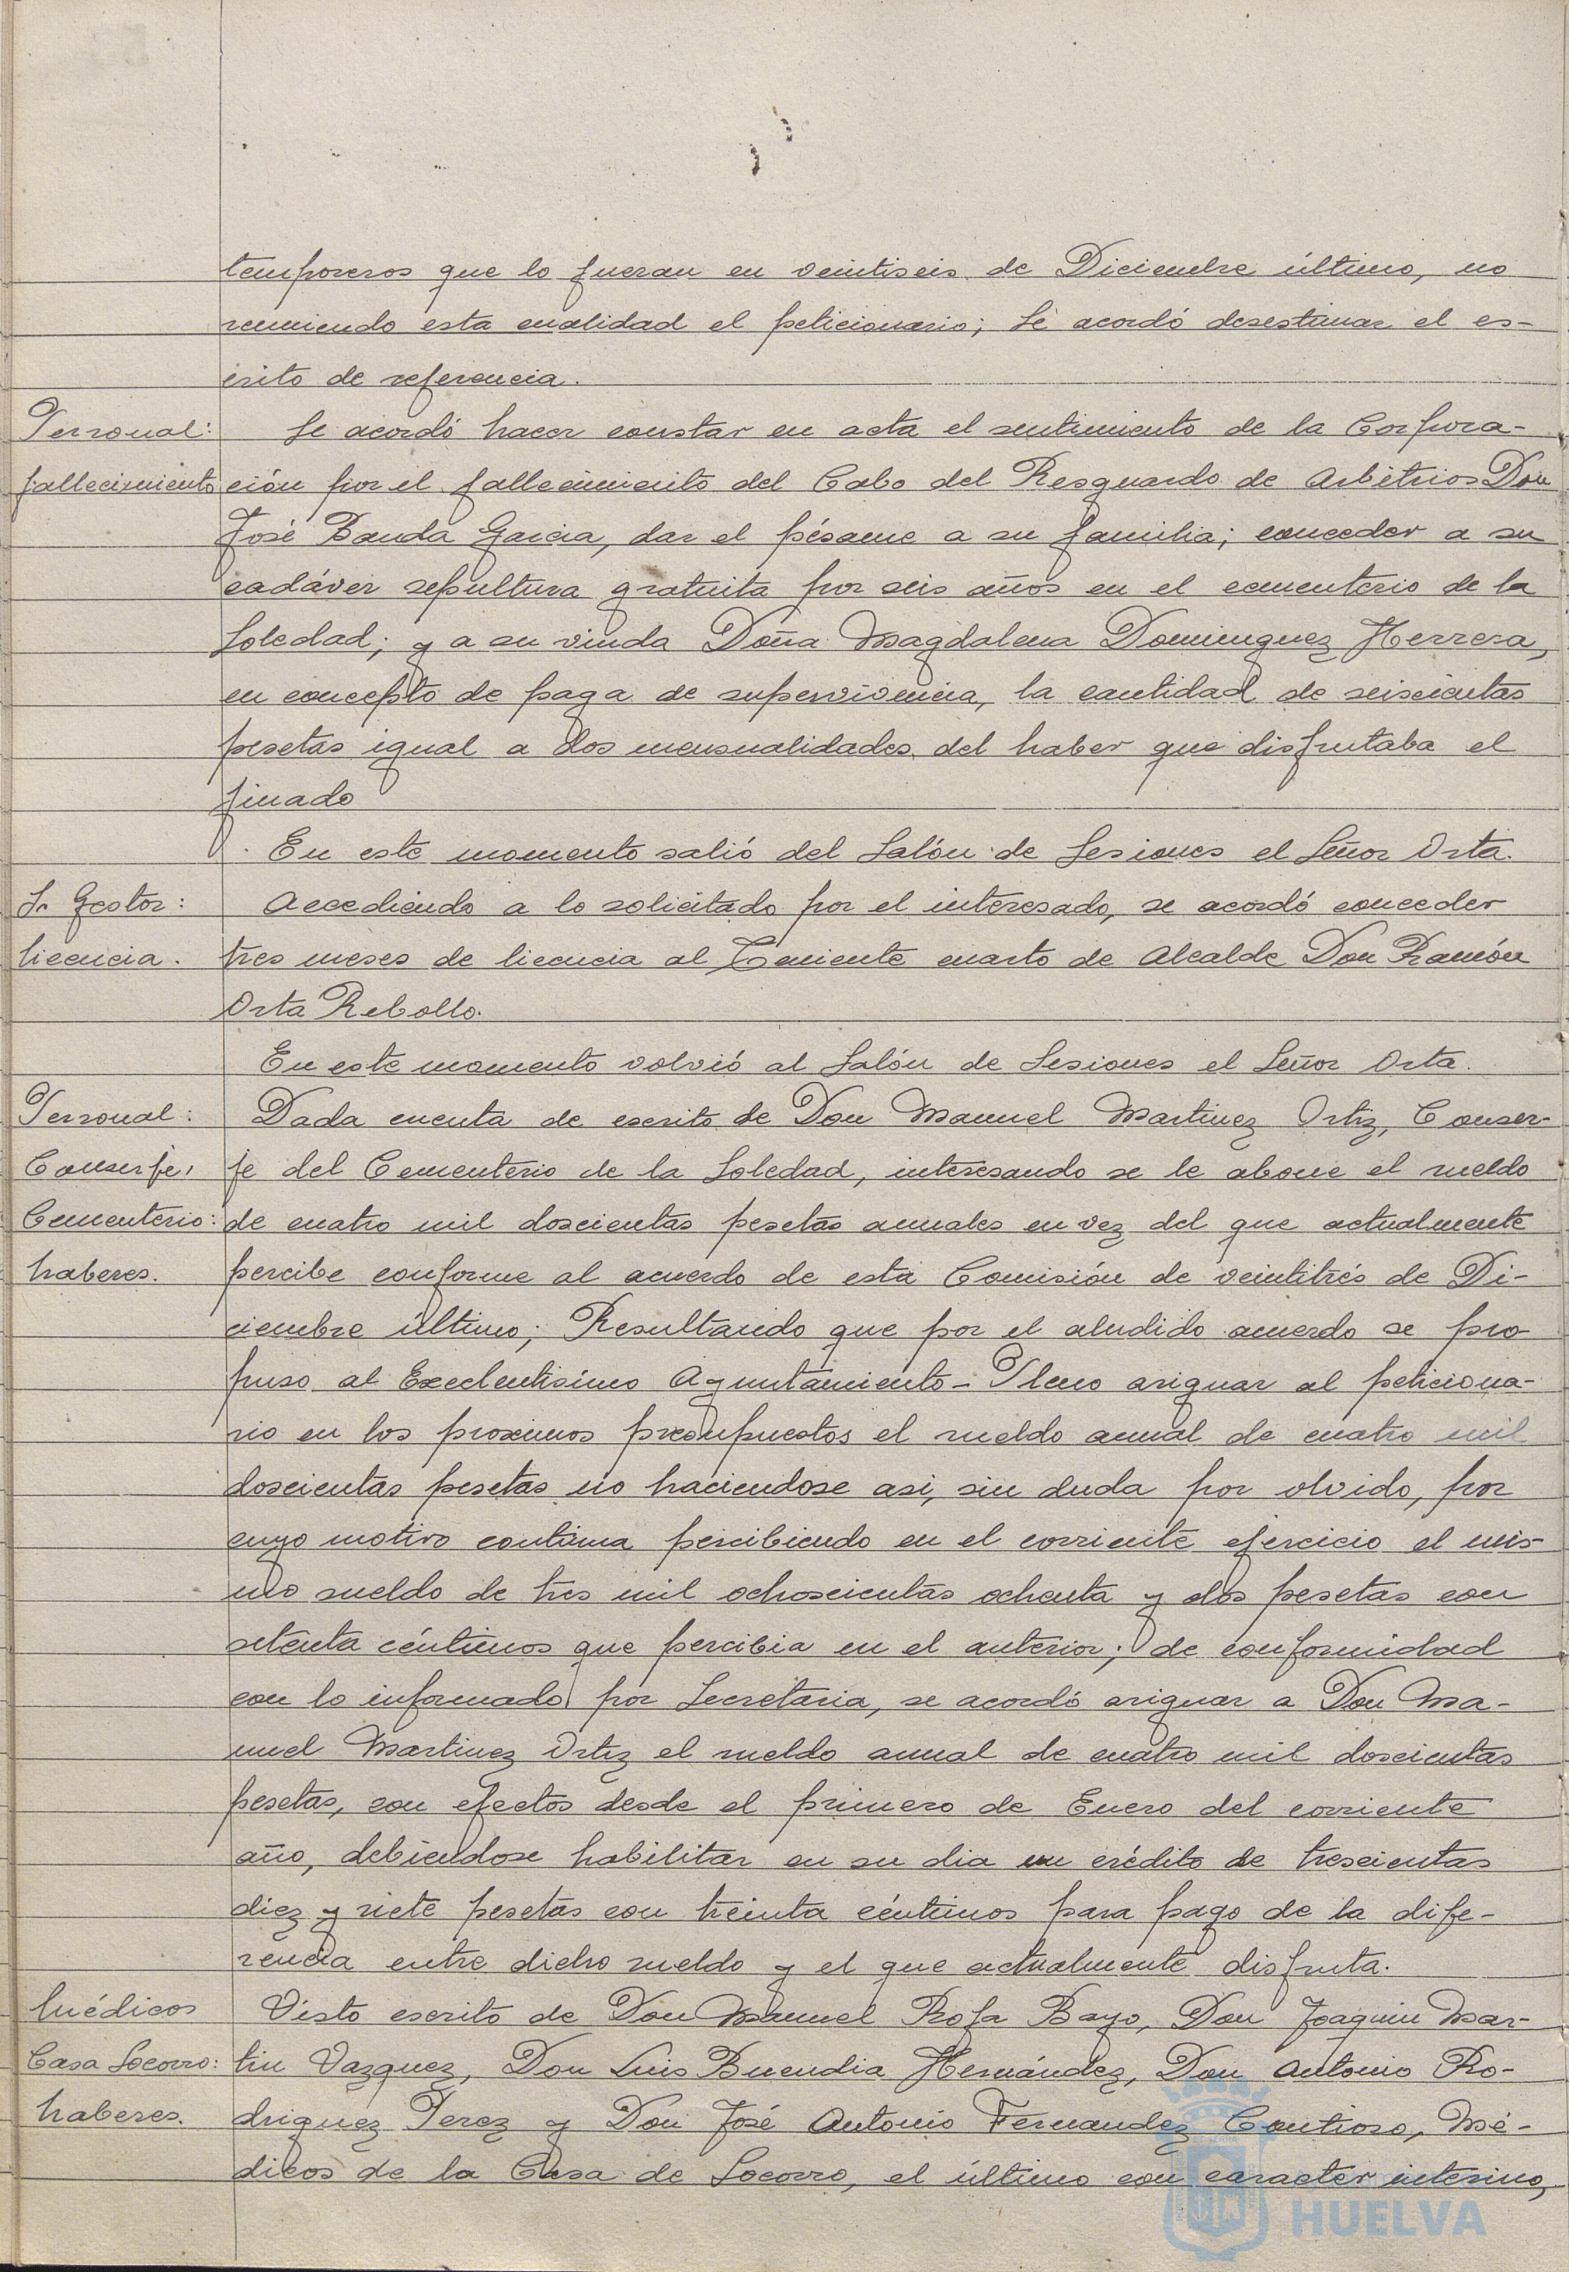 temporeros que lo fueran en veintiseis de Diciembre último, no
reuniendo esta cualidad el peticionario; Se acordó desestimar el es-
crito de referencia.
Personal: Se acordó hacer constar en acta el sentimiento de la Corpora-
fallecimiento ción por el fallecimiento del Cabo del Resguardo de Arbitrios Don
José Banda Garcia, dar el pésame a su familia; conceder a su
cadáver sepultura gratuita por seis años en el cementerio de la
Soledad; y a su viuda Doña Magdalena Dominguez Herrera,
en concepto de paga de supervivencia, la cantidad de seiscientas
pesetas igual a dos mensualidades del haber que disfrutaba el
finado
En este momento salió del Salón de Sesiones el Señor Orta.
Sr Gestor: Accediendo a lo solicitado por el interesado, se acordó conceder
licencia. tres meses de licencia al Teniente cuarto de Alcalde Don Ramón
Orta Rebollo.
En este momento volvió al Salón de Sesiones el Señor Orta.
Personal: Dada cuenta de escrito de Don Manuel Martinez Ortiz, Conser-
Conserje, je del Cementerio de la Soledad, interesando se le abone el sueldo
Cementerio: de cuatro mil doscientas pesetas anuales en vez del que actualmente
haberes. percibe conforme al acuerdo de esta Comisión de veintitrés de Di-
ciembre último; Resultando que por el aludido acuerdo se pro-
puso al Excelentisimo Ayuntamiento-Pleno asignar al peticiona-
rio en los proximos presupuestos el sueldo anual de cuatro mil
doscientas pesetas no haciendose asi, sin duda por olvido, por
cuyo motivo continua percibiendo en el corriente ejercicio el mis-
mo sueldo de tres mil ochoscientas ochenta y dos pesetas con
setenta céntimos que percibia en el anterior; de conformidad
con lo informado por Secretaria, se acordó asignar a Don Ma-
nuel Martinez Ortiz el sueldo anual de cuatro mil doscientas
pesetas, con efectos desde el primero de Enero del corriente
año, debiendose habilitar en su dia un crédito de trescientas
diez y siete pesetas con treinta céntimos para pago de la dife-
rencia entre dicho sueldo y el que actualmente disfruta.
Médicos Visto escrito de Don Manuel Rofa Bayo, Don Joaquin Mar-
Casa Socorro: tin Vazquez, Don Luis Buendia Hernández, Don Antonio Ro-
haberes. driguez Perez y Don José Antonio Fernandez Contioso, Mé-
dicos de la Casa de Socorro, el último con caracter interino,
HUELVA